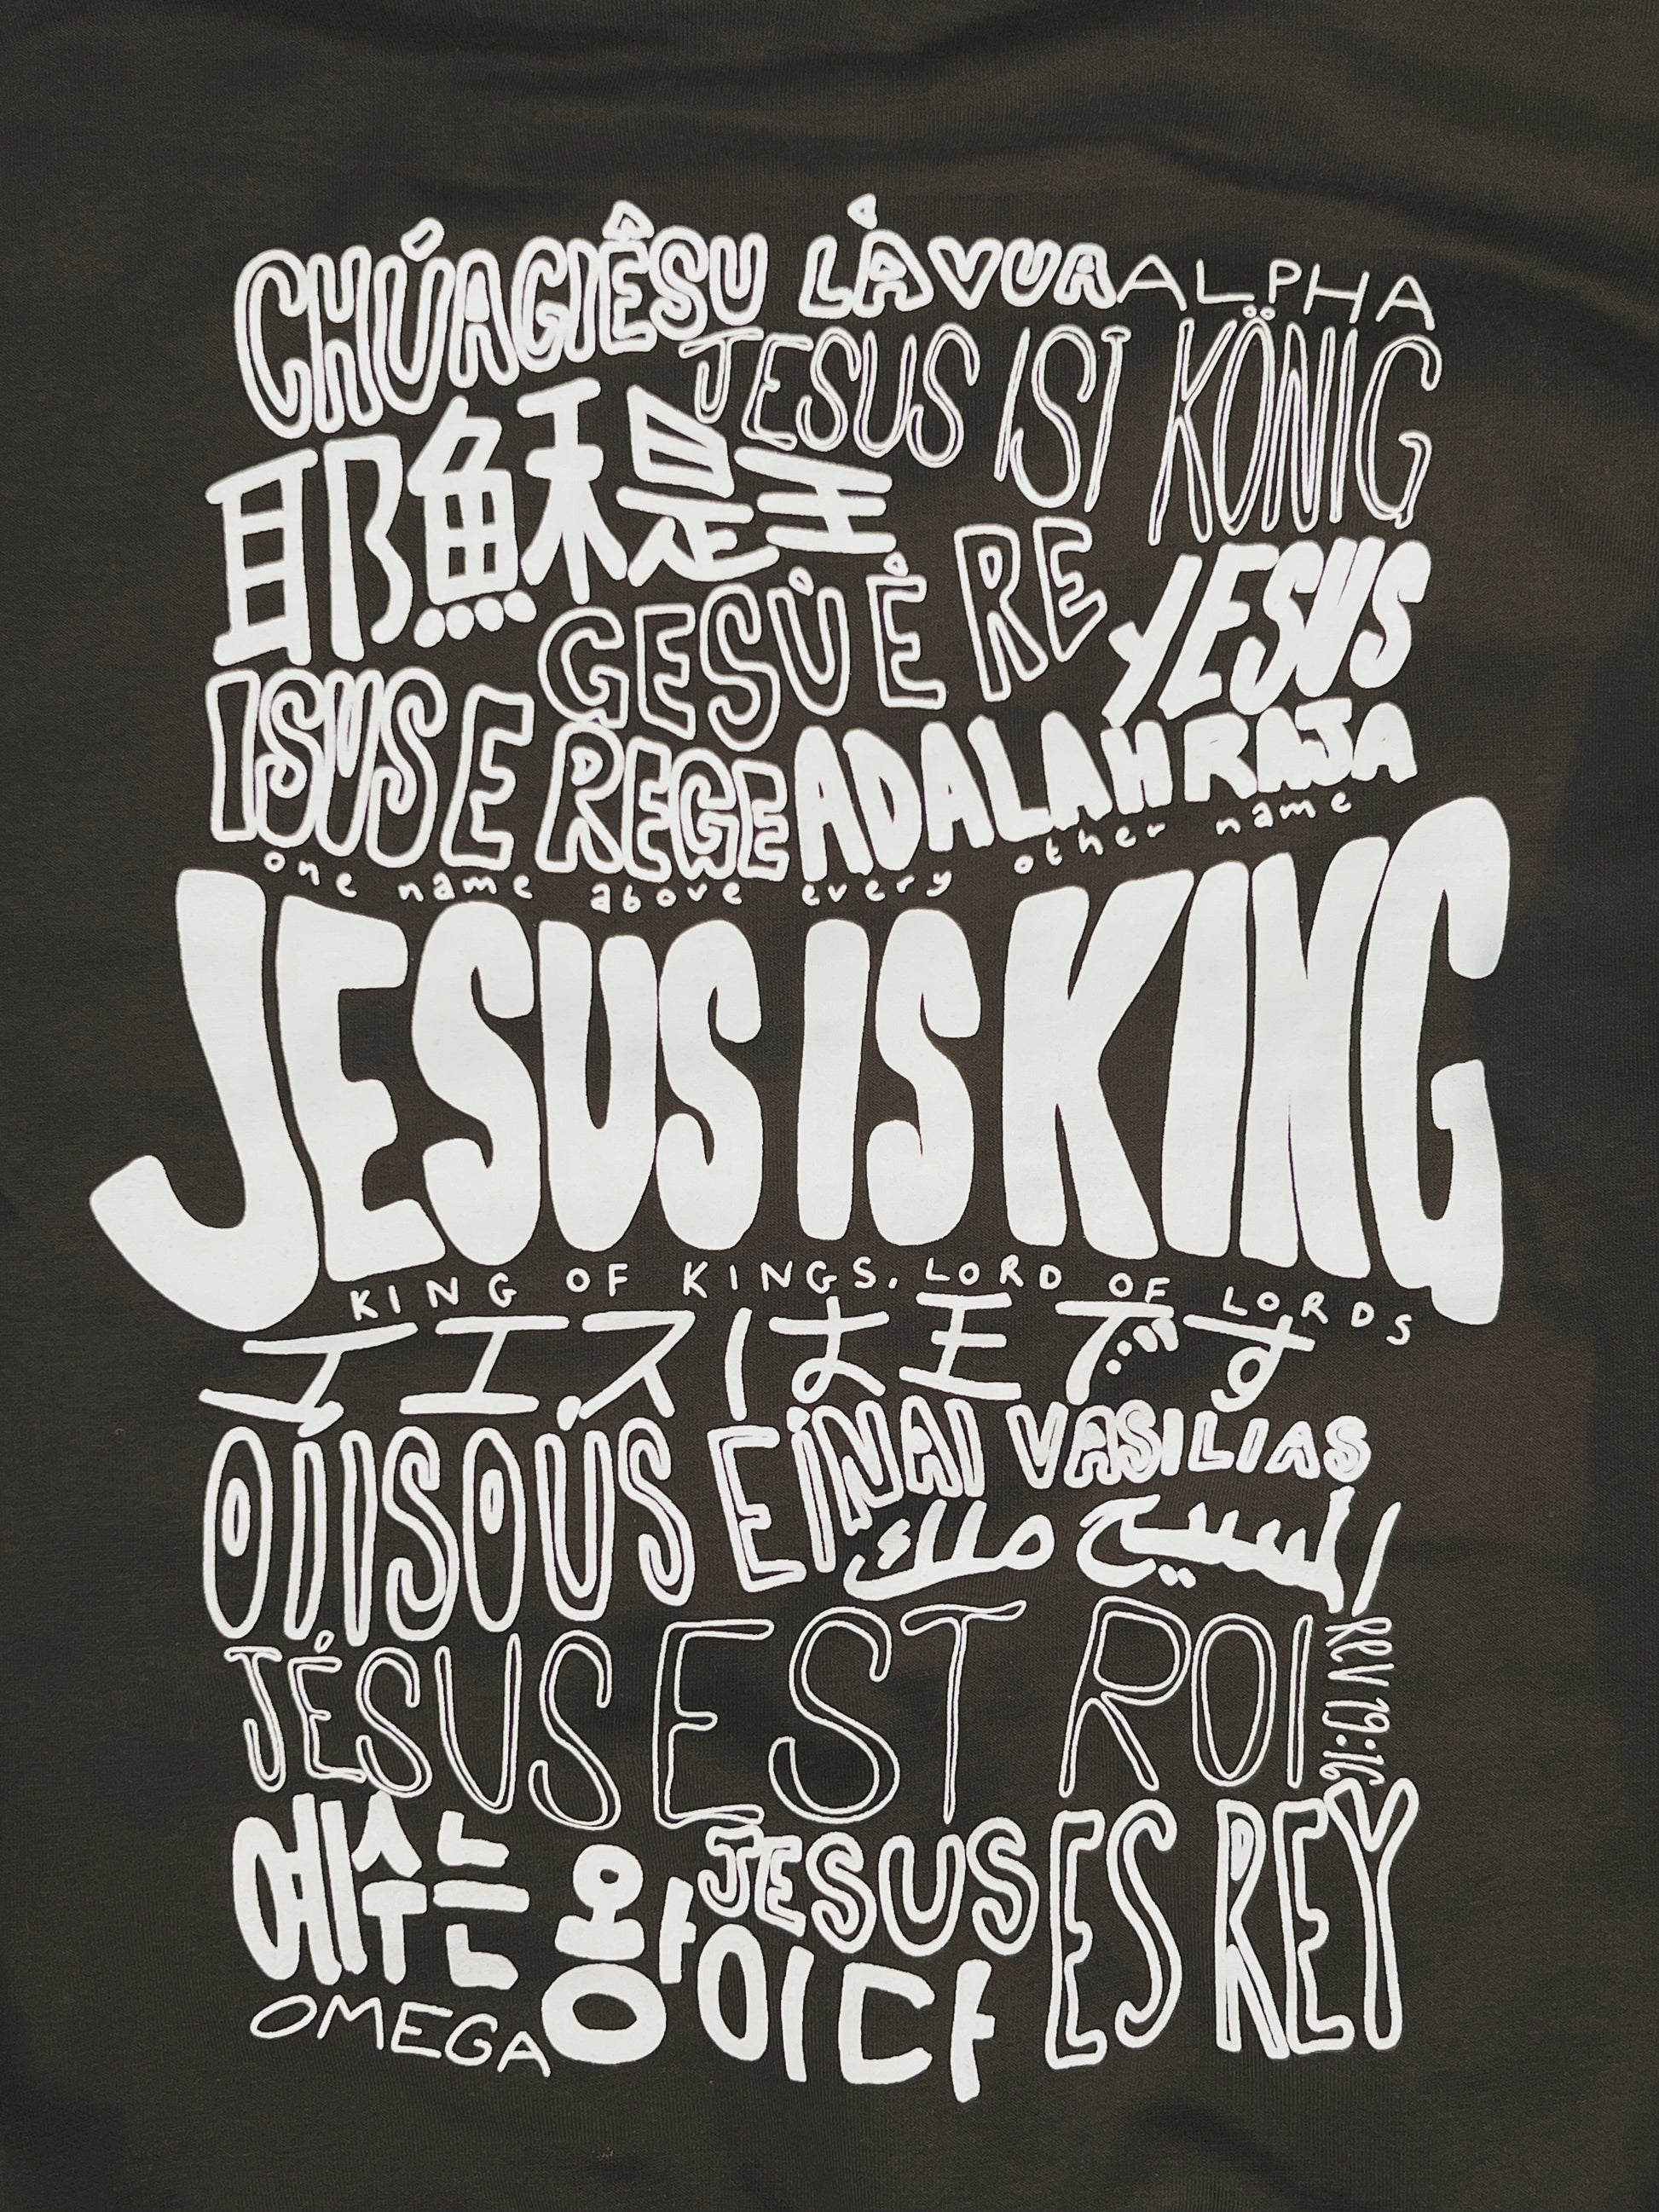 CHÚAGIÊSU LÀ VUA ALPHA
JESUS IST KÖNIG
耶穌是王
GESÙ È RE
YESUS
ISUS E REGE
ADALAH RAJA
one name above every other name
JESUS IS KING
KING OF KINGS, LORD OF LORDS
イエスは王です
O IISOÚS EÍNAI VASILIAS
المسيح ملك
JÉSUS EST ROI
REV 19:16
예수는 왕이다
JESUS ES REY
OMEGA